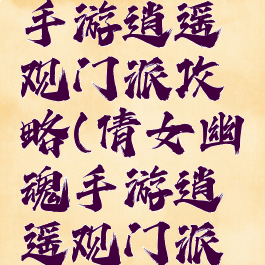 手游逍遥
观门派攻
略(倩女幽
魂手游逍
遥观门派